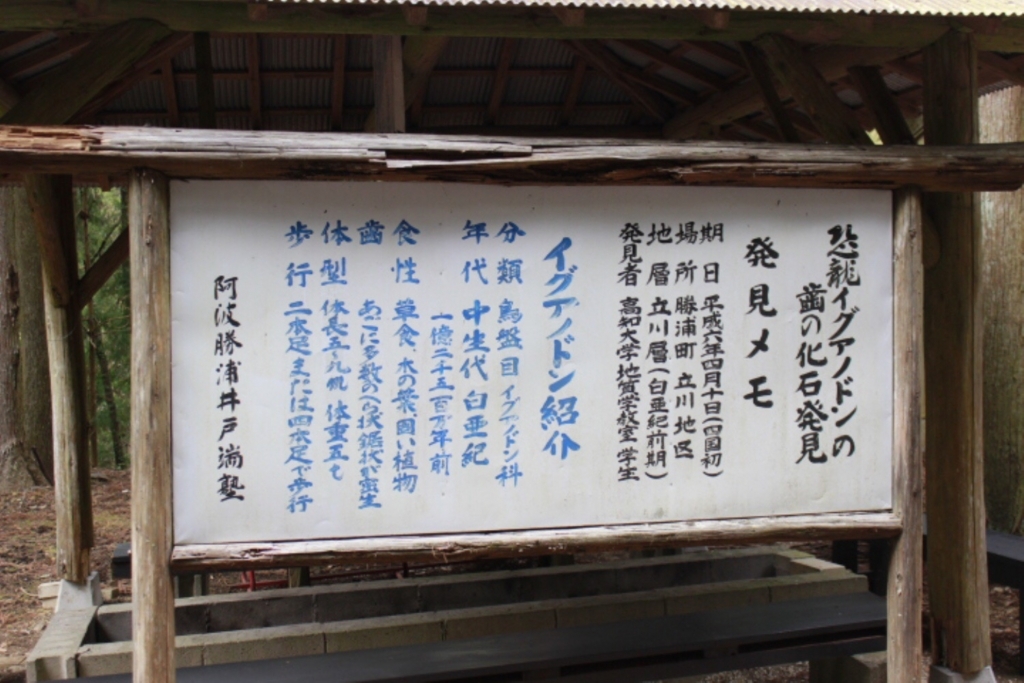 恐龍イグアノドンの
歯の化石発見
発見メモ
期日 平成六年四月十日(四国初)
場所 勝浦町 立川地区
地層 立川層(白亜紀前期)
発見者 高知大学地質学教室 学生
イグアノドン紹介
分類 鳥盤目 イグアノドン科
年代 中生代 白亜紀
一億二千五百万年前
食性 草食、木の葉、固い植物
歯 あごに多数のへら状鑑状が蜜生
体型 体長五~九m 体重五t
歩行 二本足または四本足で歩行
阿波勝浦井戸端塾